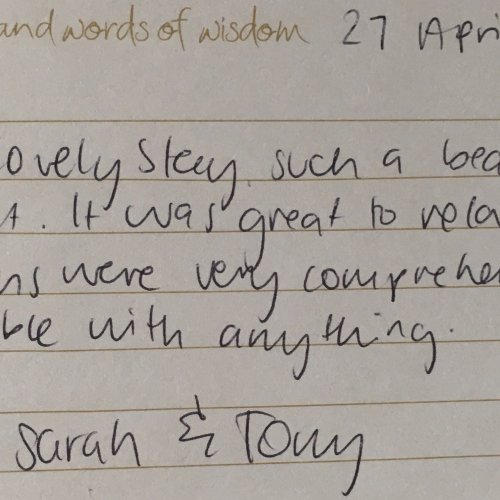 and words of wisdom 27 Apri
ovely Stay. such a bea
t. It was great to rela
ns were very comprehe
ble with anything.
Sarah & Tony